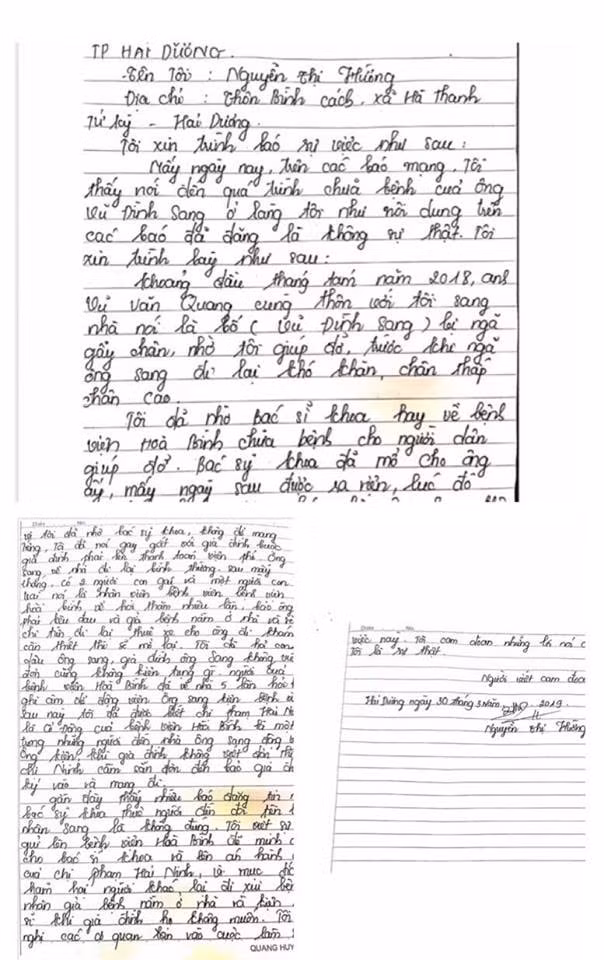 TP HẢI DƯƠNG.
-Tên Tôi : Nguyễn Thị Hướng
Địa chỉ : Thôn Bình cách. xã Hà Thanh
Tứ kỳ - Hải Dương.
Tôi xin trình báo sự việc như sau:
Mấy ngày nay, trên các báo mạng. Tôi
thấy nói đến quá trình chữa bệnh của ông
Vũ Đình Sang ở làng tôi như nội dung trên
các báo đã đăng là không sự thật. Tôi
xin trình bày như sau:
khoảng đầu tháng tám năm 2018, anh
Vũ Văn Quang cùng thôn với tôi sang
nhà nói là bố ( Vũ Đình Sang ) bị ngã
gãy chân, nhờ tôi giúp đỡ, trước khi ngã
ông sang đi lại khó khăn, chân thấp
chân cao.
Tôi đã nhờ Bác sĩ khoa hay về bệnh
viện Hoà Bình chữa bệnh cho người dân
giúp đỡ. Bác sỹ khoa đã mổ cho ông
ấy, mấy ngày sau được ra viện, lúc đó
Date No.
vì tôi đã nhờ bác sỹ khoa, không để mang
tiếng, Tôi đã nói gay gắt với gia đình buộc
gia đình phải lên thanh toán viện phí ông
sang về nhà đi lại bình thường. sau mấy
tháng, có 2 người con gái và một người con
trai nói là nhân viên bệnh viện bệnh viện
hoà bình về hỏi thăm nhiều lần, bảo ông
phải kêu đau và giả bệnh nằm ở nhà và
chi tiền đi lại thuê xe cho ông đi khám
cần thiết thì sẽ mổ lại. Tôi đã hỏi con
dâu ông sang, gia đình ông Sang không viết
đơn cũng không kiện tụng gì. người của
bệnh viện Hoà Bình đã về nhà 5 lần
ghi âm để động viên ông sang kiện bệnh
sau này tôi đã được biết chị Phạm Hải
là cổ đông của bệnh viện Hoà Bình là một
trong những người đến nhà ông sang động
ông kiện, khi gia đình không viết đơn thì
chị Ninh cầm sẵn đơn đến bảo gia
ký vào và mang đi.
gần đây thấy nhiều báo đăng tin
bác sỹ khoa thuê người dân đòi tiền
nhân sang là không đúng. Tôi viết
gửi lên bệnh viện Hoà Bình để minh
cho bác sĩ khoa và lên án hành
của chị phạm Hải Ninh, vì mục
hãm hại người khác, lại đi xui
nhân giả bệnh nằm ở nhà và kiện
sĩ khi gia đình họ không muốn. Tôi
nghị các cơ quan liên vào cuộc làm
QUANG HUY
Date No.
việc này. Tôi cam đoan những lời nói
Tôi là sự thật
Người viết cam đoan
Hải Dương ngày 30 tháng 3 năm 2019.
Nguyễn Thị Hướng